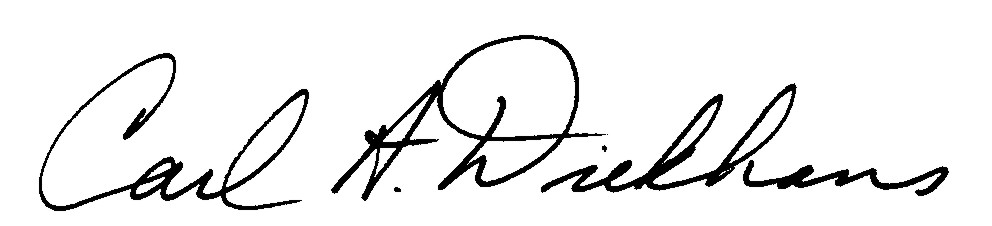 Carl A. Diekhans